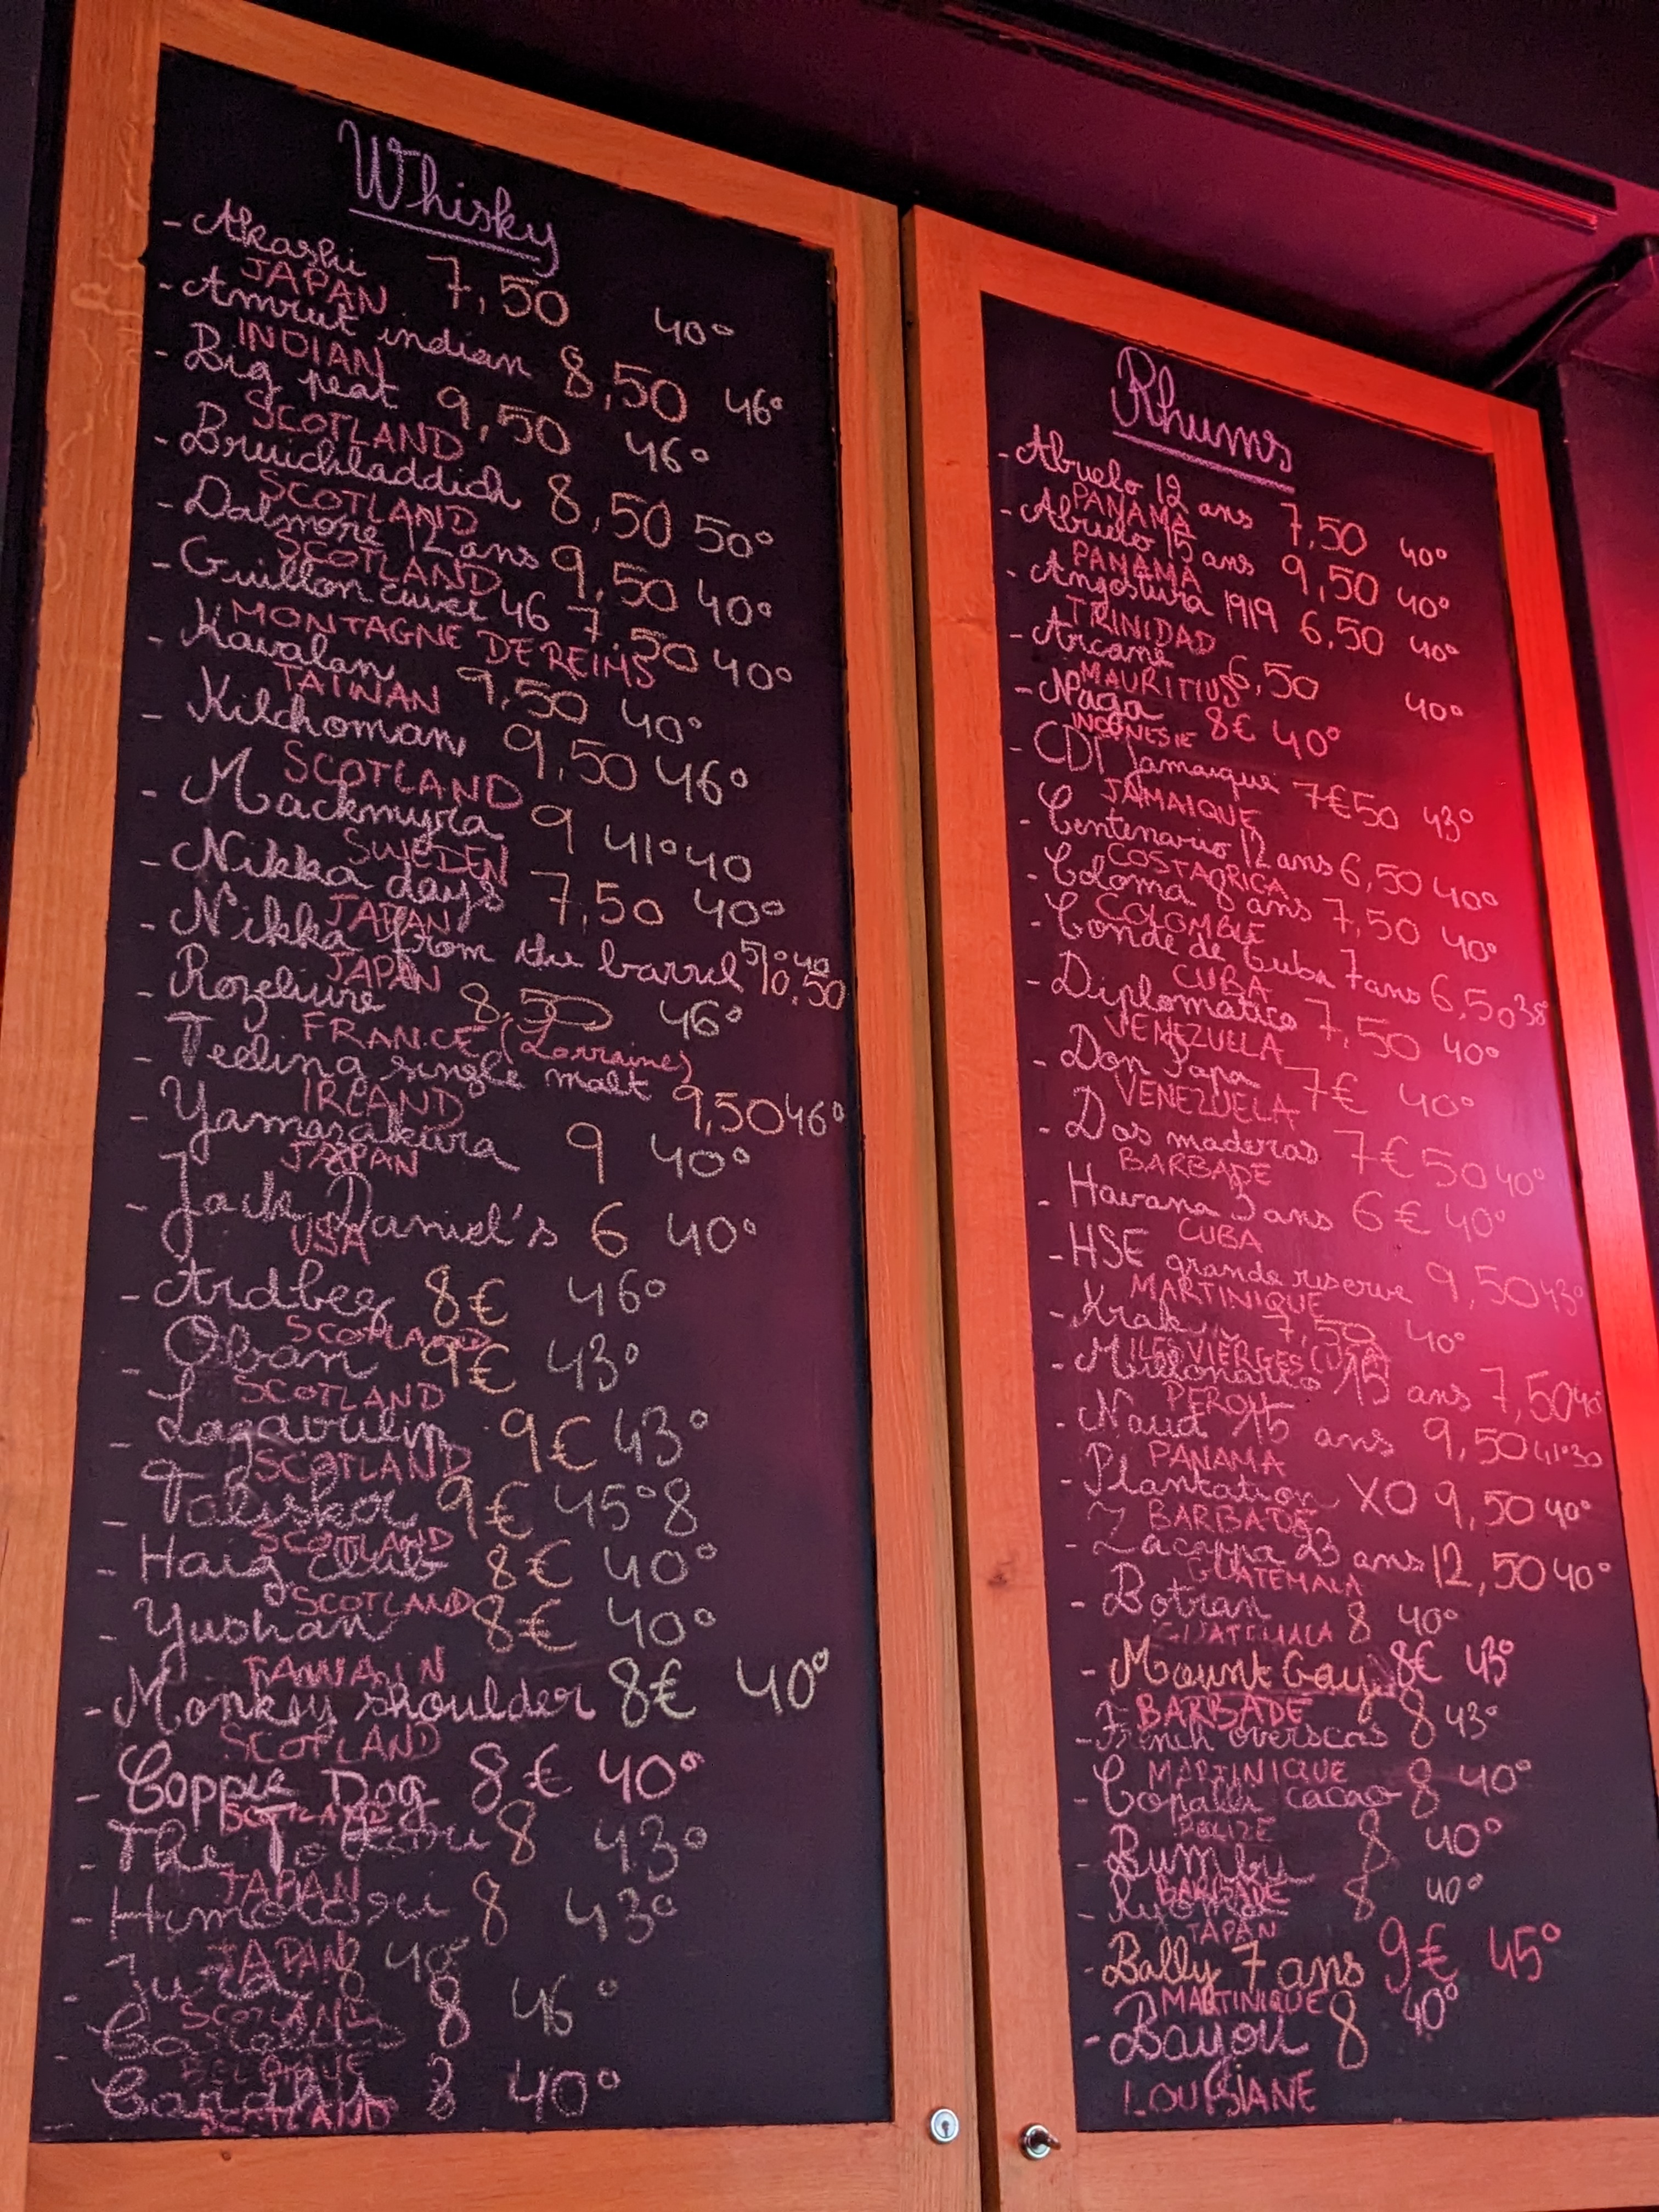 Whisky
- Akashi 7,50 40°
JAPAN
- Amrut indian 8,50 46°
INDIAN
- Big peat 9,50 46°
SCOTLAND
- Bruichladdich 8,50 50°
SCOTLAND
- Dalmore 12 ans 9,50 40°
SCOTLAND
- Guillon cuvée 46 7,50 40°
MONTAGNE DE REIMS
- Kavalan 9,50 40°
TAINAN
- Kilchoman 9,50 46°
SCOTLAND
- Mackmyra 9 41°40
SWEDEN
- Nikka days 7,50 40°
JAPAN
- Nikka from the barrel 51°40 10,50
JAPAN
- Rozelieure 8,50 46°
FRANCE (Lorraine)
- Teeling single malt 9,50 46°
IRLAND
- Yamazakura 9 40°
JAPAN
- Jack Daniel's 6 40°
USA
- Ardbeg 8€ 46°
SCOTLAND
- Oban 9€ 43°
SCOTLAND
- Lagavulin 9€ 43°
SCOTLAND
- Talisker 9€ 45°8
SCOTLAND
- Haig club 8€ 40°
SCOTLAND
- Yushan 8€ 40°
TAWAIN
- Monkey shoulder 8€ 40°
SCOTLAND
- Coppie Dog 8€ 40°
SCOTLAND
- The 8 43°
JAPAN
- 8 43°
JAPAN
- Jura 8 40°
SCOTLAND
- 8 46°
BELGIQUE
8 40°
SCOTLAND
Rhums
- Abuelo 12 ans 7,50 40°
PANAMA
- Abuelo 15 ans 9,50 40°
PANAMA
- Angostura 1919 6,50 40°
TRINIDAD
- Arcane 6,50 40°
MAURITIUS
- Naga 8€ 40°
INDONESIE
- CDI Jamaique 7€50 43°
JAMAIQUE
- Centenario 12 ans 6,50 40°
COSTA RICA
- Coloma 8 ans 7,50 40°
COLOMBIE
- Conde de Cuba 7 ans 6,50 38°
CUBA
- Diplomatico 7,50 40°
VENEZUELA
- Don Papa 7€ 40°
VENEZUELA
- Dos maderas 7€50 40°
BARBADE
- Havana 3 ans 6€ 40°
CUBA
- HSE grande reserve 9,50 43°
MARTINIQUE
- Kraken 7,50 40°
ILES VIERGES (USA)
- Millonario 15 ans 7,50 40°
PEROU
- Naud 15 ans 9,50 41°30
PANAMA
- Plantation XO 9,50 40°
BARBADE
- Zacappa 23 ans 12,50 40°
GUATEMALA
- Botran 8 40°
GUATEMALA
- Mount Gay 8€ 43°
BARBADE
- French overseas 8 43°
MARTINIQUE
- Copalli cacao 8 40°
BELIZE
- Bumbu 8 40°
BARBADE
- 8 40°
JAPAN
- Bally 7 ans 9€ 45°
MARTINIQUE
- Bayou 8 40°
LOUISIANE